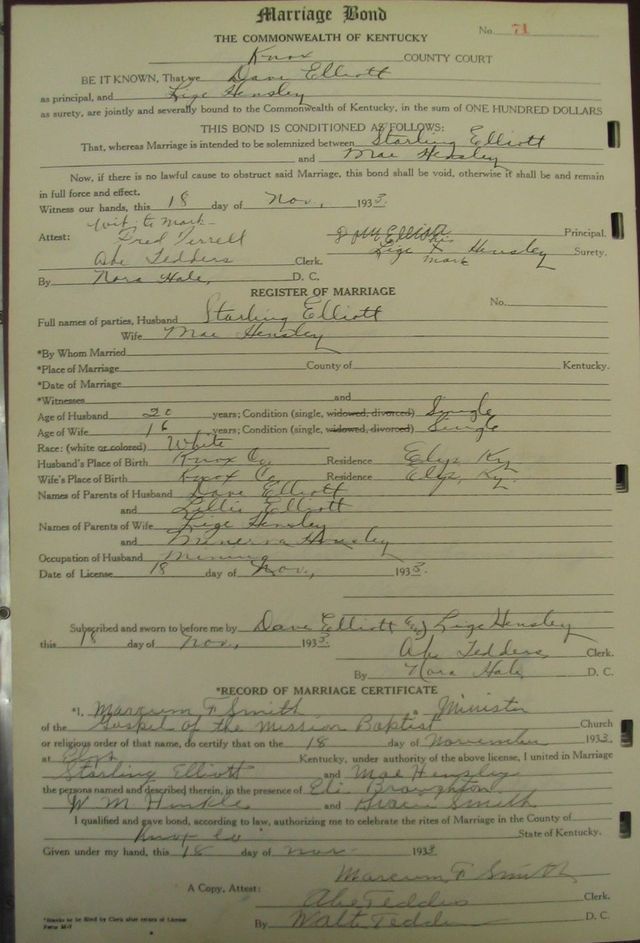 Marriage Bond
No. 71
THE COMMONWEALTH OF KENTUCKY
Knox COUNTY COURT
BE IT KNOWN, That we Dave Elliott
as principal, and Lige Hensley
as surety, are jointly and severally bound to the Commonwealth of Kentucky, in the sum of ONE HUNDRED DOLLARS
THIS BOND IS CONDITIONED AS FOLLOWS:
That, whereas Marriage is intended to be solemnized between Starling Elliott
and Mae Hensley
Now, if there is no lawful cause to obstruct said Marriage, this bond shall be void, otherwise it shall be and remain
in full force and effect.
Witness our hands, this 18 day of Nov, 1933.
Wit to mark
Attest: Fred Terrell Elliott Principal.
Abe Tedders Clerk. Lige his X mark Hensley Surety.
By Nora Hale, D. C.
REGISTER OF MARRIAGE
No.
Full names of parties, Husband Starling Elliott
Wife Mae Hensley
*By Whom Married
*Place of Marriage County of Kentucky.
*Date of Marriage
*Witnesses and
Age of Husband 20 years; Condition (single, widowed, divorced) Single
Age of Wife 16 years; Condition (single, widowed, divorced) Single
Race: (white or colored) White
Husband's Place of Birth Knox Co, Residence Elys Ky.
Wife's Place of Birth Knox Co Residence Elys, Ky.
Names of Parents of Husband Dave Elliott
and Lillie Elliott
Names of Parents of Wife Lige Hensley
and Minerva Hensley
Occupation of Husband Mining
Date of License 18 day of Nov, 1933.
Subscribed and sworn to before me by Dave Elliott & Lige Hensley
this 18 day of Nov, 1933
Abe Tedders, Clerk.
By Nora Hale, D. C.
*RECORD OF MARRIAGE CERTIFICATE
*I, Marcum F Smith a Minister
of the Gospel of the Mission Baptist Church
or religious order of that name, do certify that on the 18 day of November 1933.
at Elys Kentucky, under authority of the above license, I united in Marriage
Starling Elliott and Mae Hensley
the persons named and described therein, in the presence of Eli Broughton
W. M. Hinkle and Smith
I qualified and gave bond, according to law, authorizing me to celebrate the rites of Marriage in the County of
Knox Co State of Kentucky.
Given under my hand, this 18 day of Nov 1933
Marcum F Smith
A Copy, Attest: Abe Tedders Clerk.
By Walter Tedders D. C.
*Blanks to be filed by Clerk after return of License
Form M-7